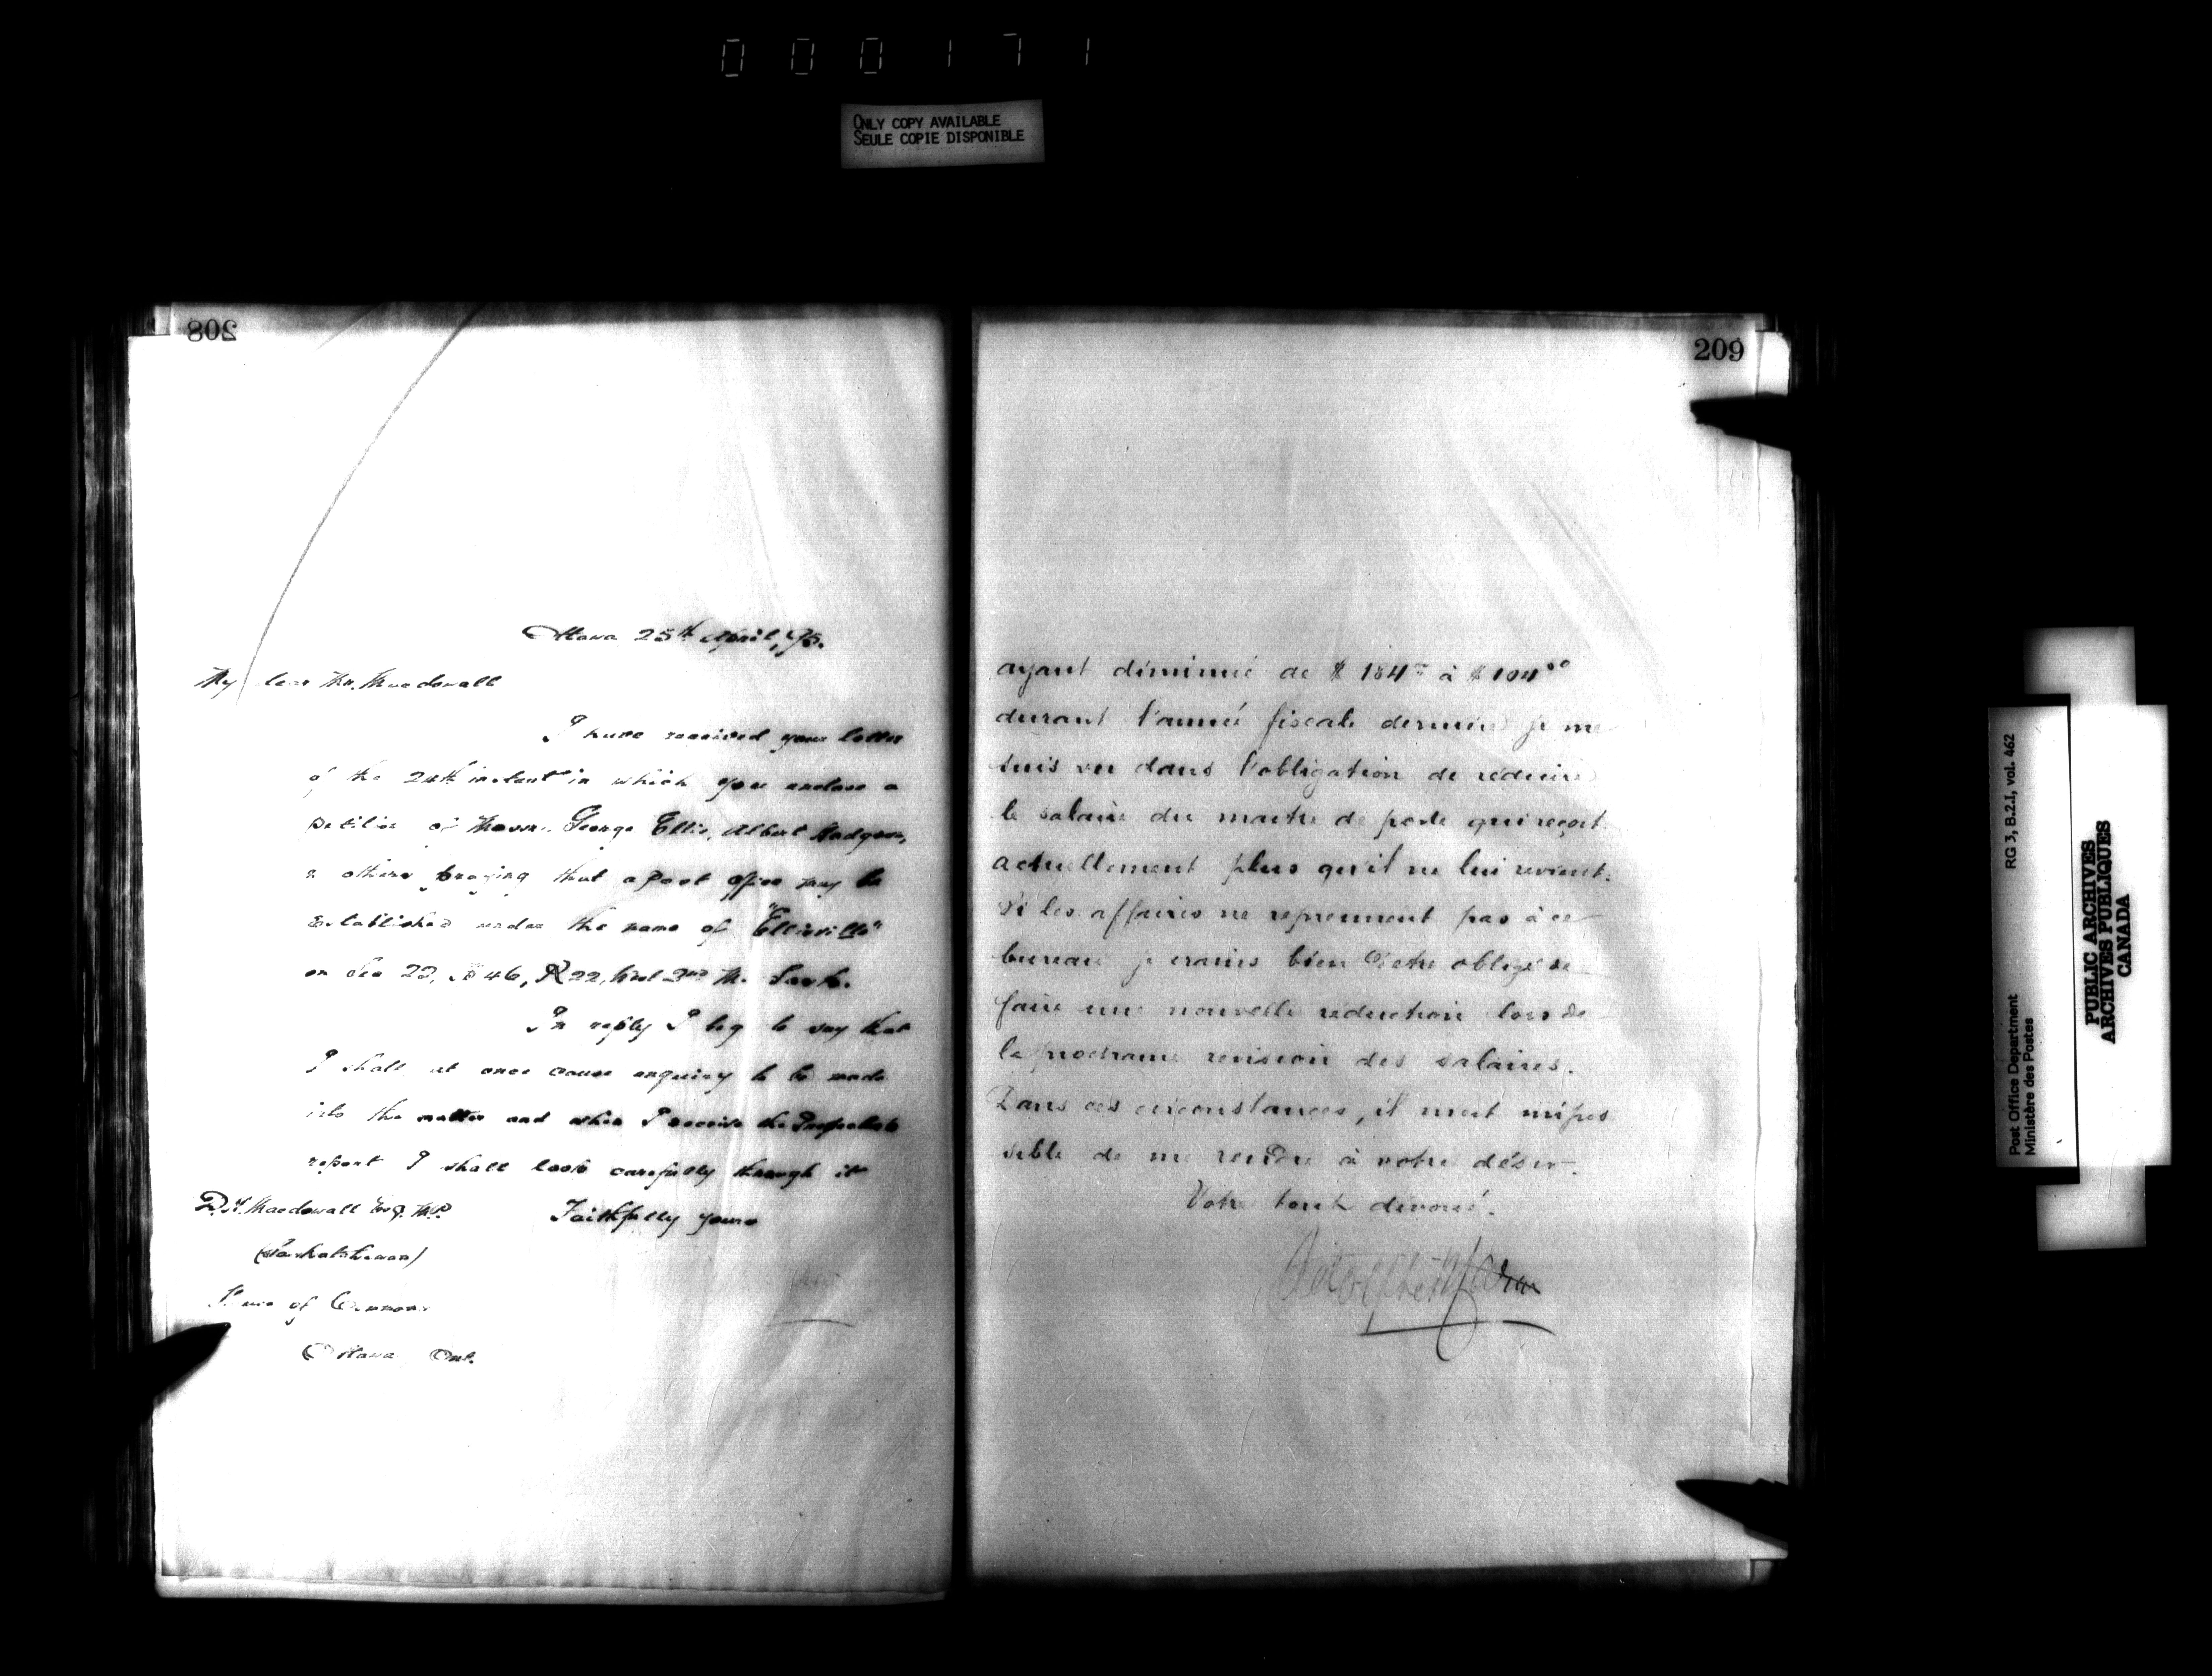 000171
ONLY COPY AVAILABLE
SEULE COPIE DISPONIBLE
208
Ottawa 25th April, 95.
My dear Mr. Macdowall
I have received your letter
of the 24th instant in which you enclose a
petition of Messrs. George Ellis, Albert Hadgson,
& others praying that a Post Office may be
established under the name of "Ellisville"
on Sec 22, T 46, R 22, West 2nd M. Sask.
In reply I beg to say that
I shall at once cause enquiry to be made
into the matter and when I receive the Inspector's
report I shall look carefully through it
Faithfully yours
D.H. Macdowall Esq. M.P.
(Saskatchewan)
House of Commons
Ottawa, Ont.
209
ayant diminué de $ 184 à $ 104 00
durant l'année fiscale dernière je me
suis vu dans l'obligation de réduire
le salaire du maitre de poste qui reçoit
actuellement plus qu'il ne lui revient.
Si les affaires ne reprennent pas à ce
bureau je crains bien d'être obligé de
faire une nouvelle réduction lors de
la prochaine revision des salaires.
Dans ces circonstances, il m'est impos
sible de me rendre à votre désir.
Votre tout dévoué.
Adolphe P. Caron
Post Office Department
Ministère des Postes
RG 3, B.2.I, vol. 462
PUBLIC ARCHIVES
ARCHIVES PUBLIQUES
CANADA